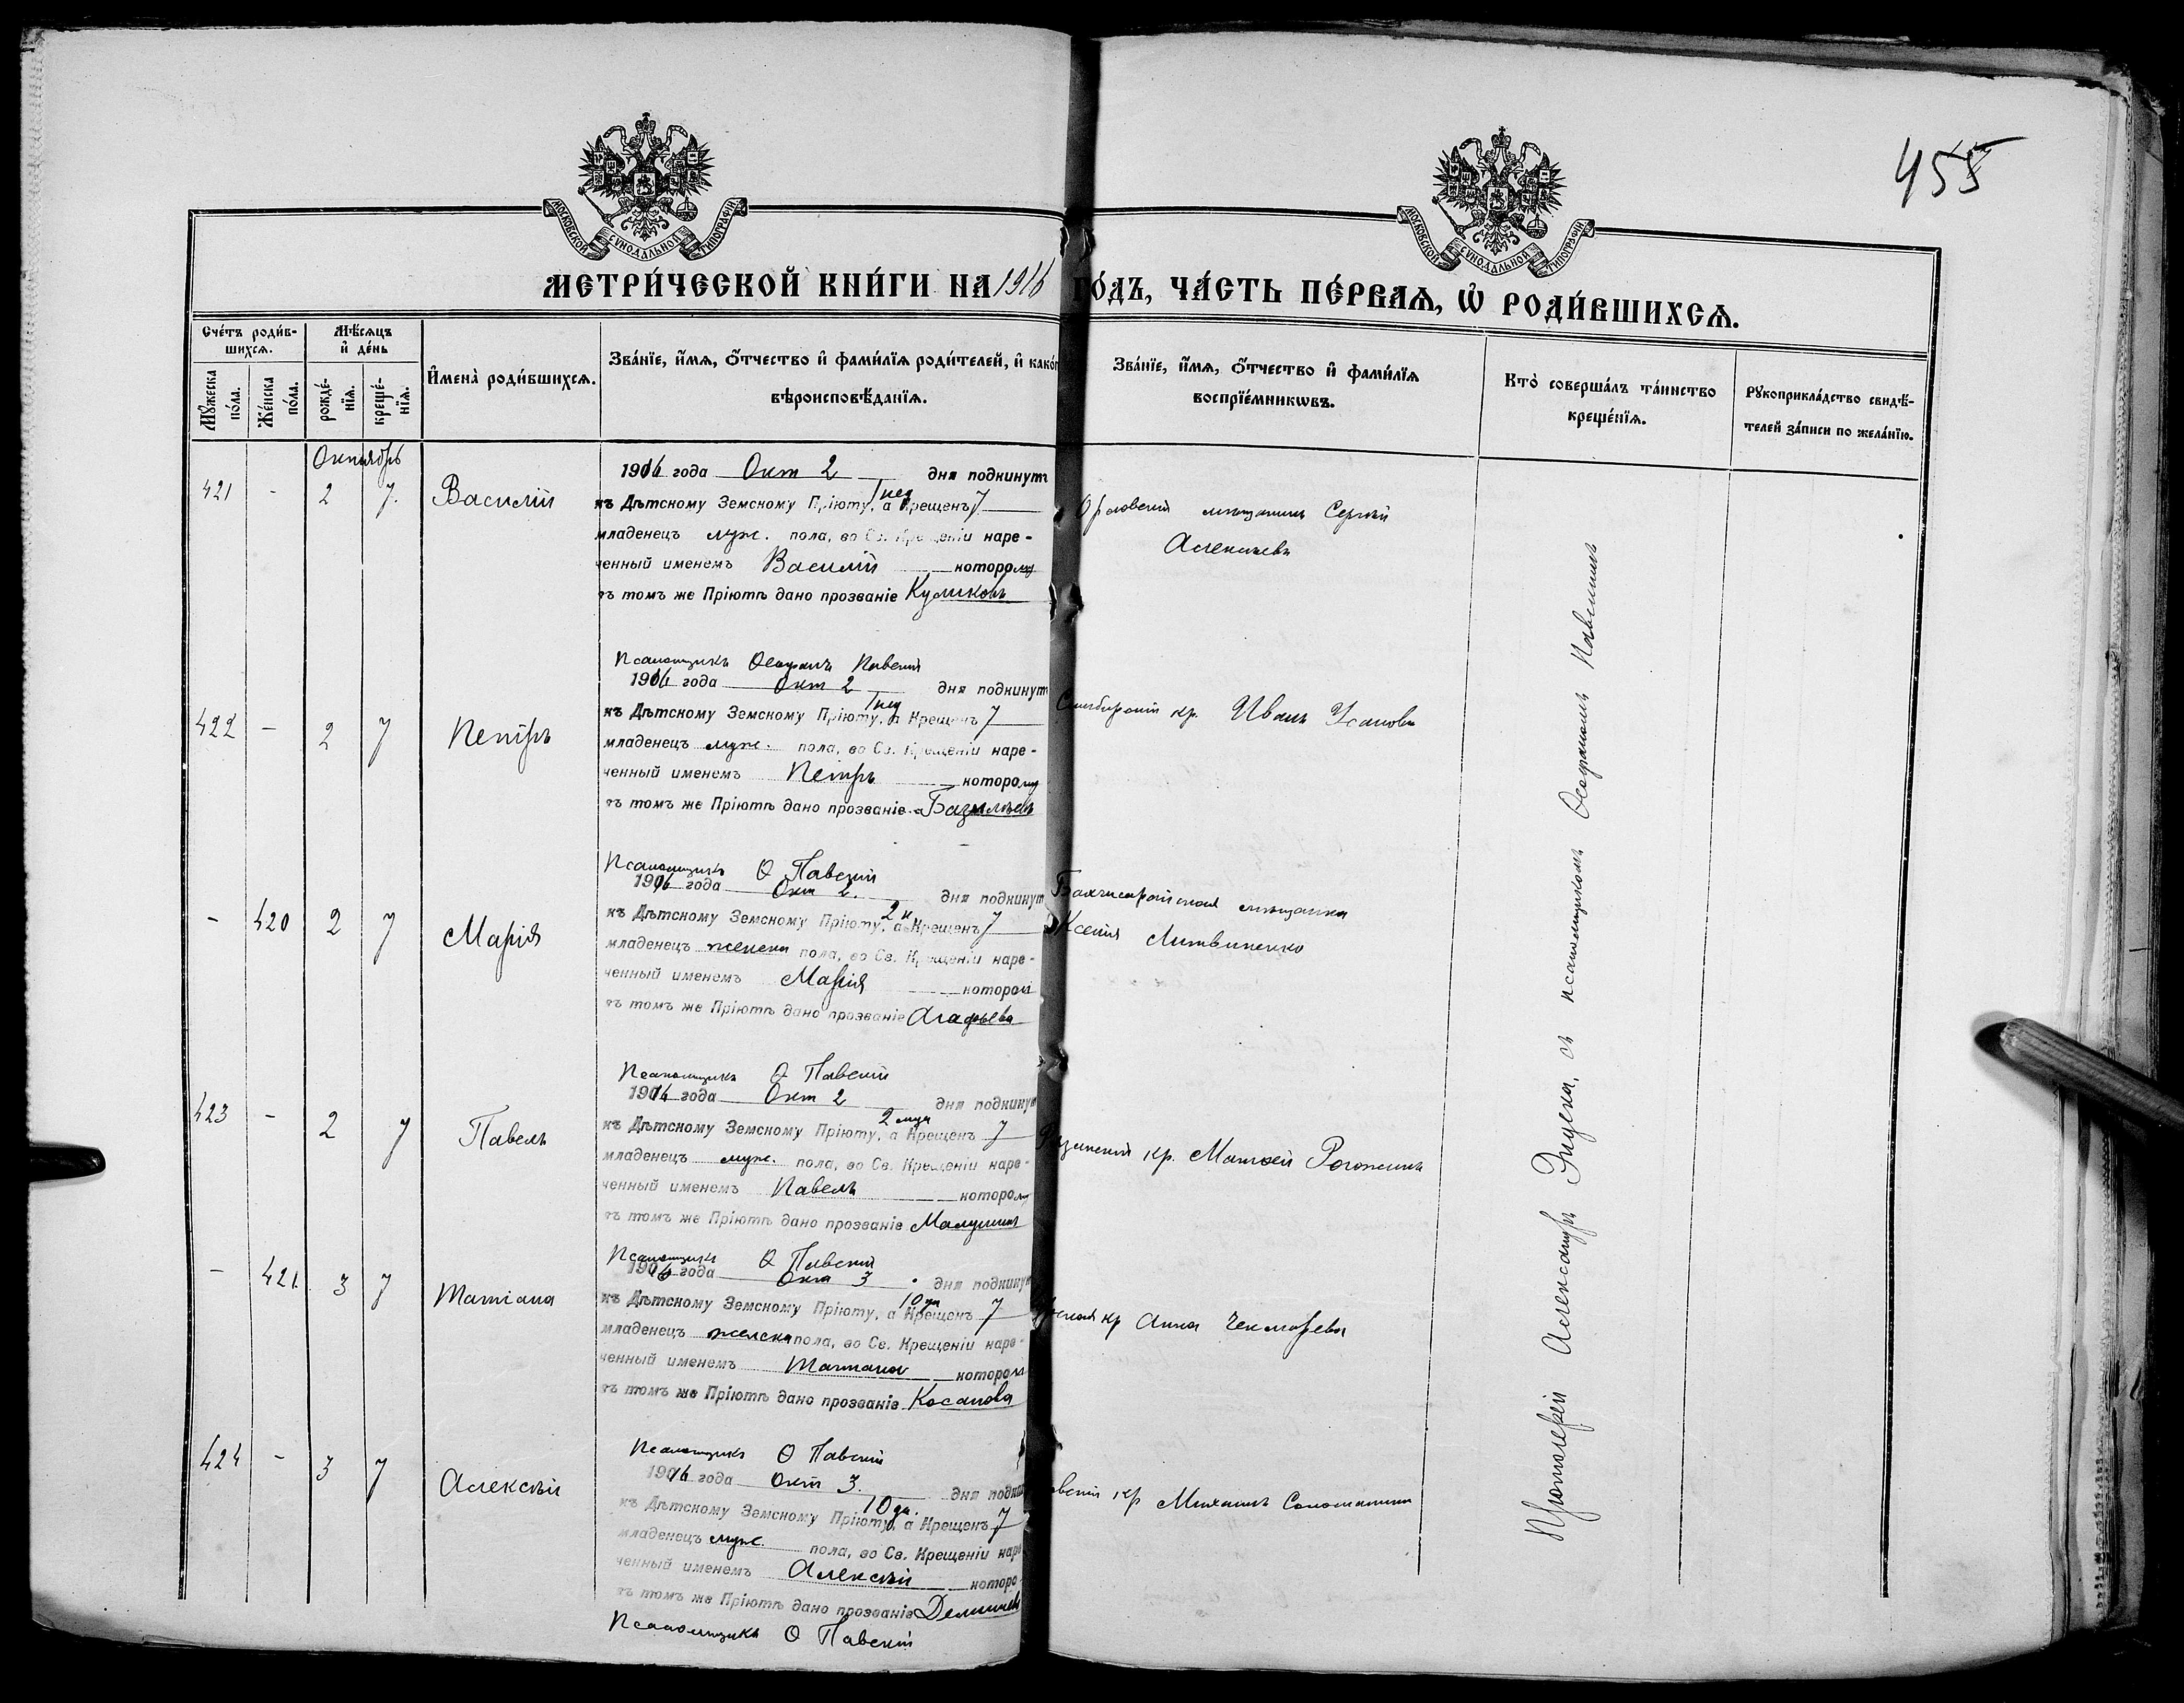 455
МОСКОВСКОЙ СУНОДАЛЬНОЙ ТИПОГРАФІИ
МОСКОВСКОЙ СУНОДАЛЬНОЙ ТИПОГРАФІИ
МЕТРИ́ЧЕСКОЙ КНИ́ГИ НА 1916 ГО́ДЪ, ЧА́СТЬ ПЕ́РВАѦ, Ѡ҆ РОДИ́ВШИХСѦ.
Сче́тъ роди́в-
шихсѧ.
Мꙋ́жеска по́ла.
Же́нска по́ла.
Мѣ́сѧцъ
и҆ де́нь
рожде́-
нїѧ.
креще́-
нїѧ.
И҆мена̀ роди́вшихсѧ.
Зва́нїе, и҆́мѧ, ѻ҆́тчество и҆ фами́лїѧ роди́телей, и҆ како́г
вѣроисповѣ́данїѧ.
Зва́нїе, и҆́мѧ, ѻ҆́тчество и҆ фами́лїѧ
воспрїе́мникѡвъ.
Кто̀ соверша́лъ та́инство
креще́нїѧ.
Рꙋкоприкла́дство свидѣ́-
телей за́писи по жела́нїю.
Октябрь
421 - 2 7. Василій
1916 года Окт 2 дня подкинутъ
къ Дѣтскому Земскому Пріюту, 1 нед а Крещенъ 7
младенецъ муж. пола, во Св. Крещеніи наре-
ченный именемъ Василій которому
въ томъ же Пріютѣ дано прозваніе Куликовъ
мѣщанинъ Сергѣй
Алексѣевъ
Псаломщикъ Ѳеофанъ Павскій
422 - 2 7 Петръ
1916 года Окт 2 дня подкинут
къ Дѣтскому Земскому Пріюту, 1 нед а Крещенъ 7
младенецъ муж. пола, во Св. Крещеніи наре-
ченный именемъ Петръ которому
въ томъ же Пріютѣ дано прозваніе
Симбирскій кр. Иванъ
Псаломщикъ Ѳ Павскій
- 420 2 7 Марія
1916 года Окт 2. дня подкинут
къ Дѣтскому Земскому Пріюту, 2 н а Крещенъ 7
младенецъ женска пола, во Св. Крещеніи наре-
ченный именемъ Марія которой
въ томъ же Пріютѣ дано прозваніе Агафьева
Бахчисарайская мѣщанка
Ксенія Литвиненко
Псаломщикъ Ѳ Павскій
423 - 2 7 Павелъ
1916 года Окт 2 дня подкинут
къ Дѣтскому Земскому Пріюту, 2 а Крещенъ 7
младенецъ муж. пола, во Св. Крещеніи наре-
ченный именемъ Павелъ которому
въ томъ же Пріютѣ дано прозваніе
кр. Матвѣй Рогожинъ
Псаломщикъ Ѳ Павскій
- 421 3 7 Татіана
1916 года Окт 3 дня подкинут
къ Дѣтскому Земскому Пріюту, 10 дн а Крещенъ 7
младенецъ женска пола, во Св. Крещеніи наре-
ченный именемъ Татіана которой
въ томъ же Пріютѣ дано прозваніе Косанова
кр Анна Чекмарева
Псаломщикъ Ѳ Павскій
424 - 3 7 Алексѣй
1916 года Окт 3. дня подки
къ Дѣтскому Земскому Пріюту, 10 дн. а Крещенъ 7
младенецъ муж. пола, во Св. Крещеніи наре
ченный именемъ Алексѣй которо
въ томъ же Пріютѣ дано прозваніе
кр Михаилъ
Псаломщикъ Ѳ Павскій
Протоіерей Александръ съ псаломщикомъ Ѳеофаномъ Павскимъ